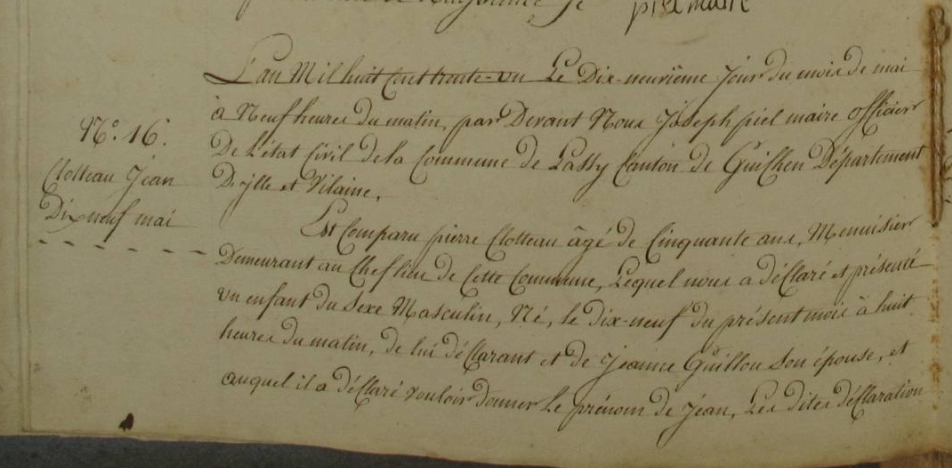 piel maire
L'an Mil huit Cent trente-un Le Dix-neuvième jour du mois de mai
à Neuf heures du matin, par Devant Nous Joseph piel maire officier
De L'état Civil de la Commune de Lassy Canton de Guichen Département
D'ille et Vilaine,
N.º 16.
Clotteau Jean
Dix neuf mai
Est Comparu pierre Clotteau âgé de Cinquante ans, Menuisier
Demeurant au Chef lieu de Cette Commune, Lequel nous a déClaré et présenté
un enfant du Sexe Masculin, Né, le dix-neuf du présent mois à huit
heures du matin, de lui déClarant et de Jeanne Guillou Son épouse, et
auquel il a déClaré vouloir Donner Le prénom de Jean, Les dites déClaration